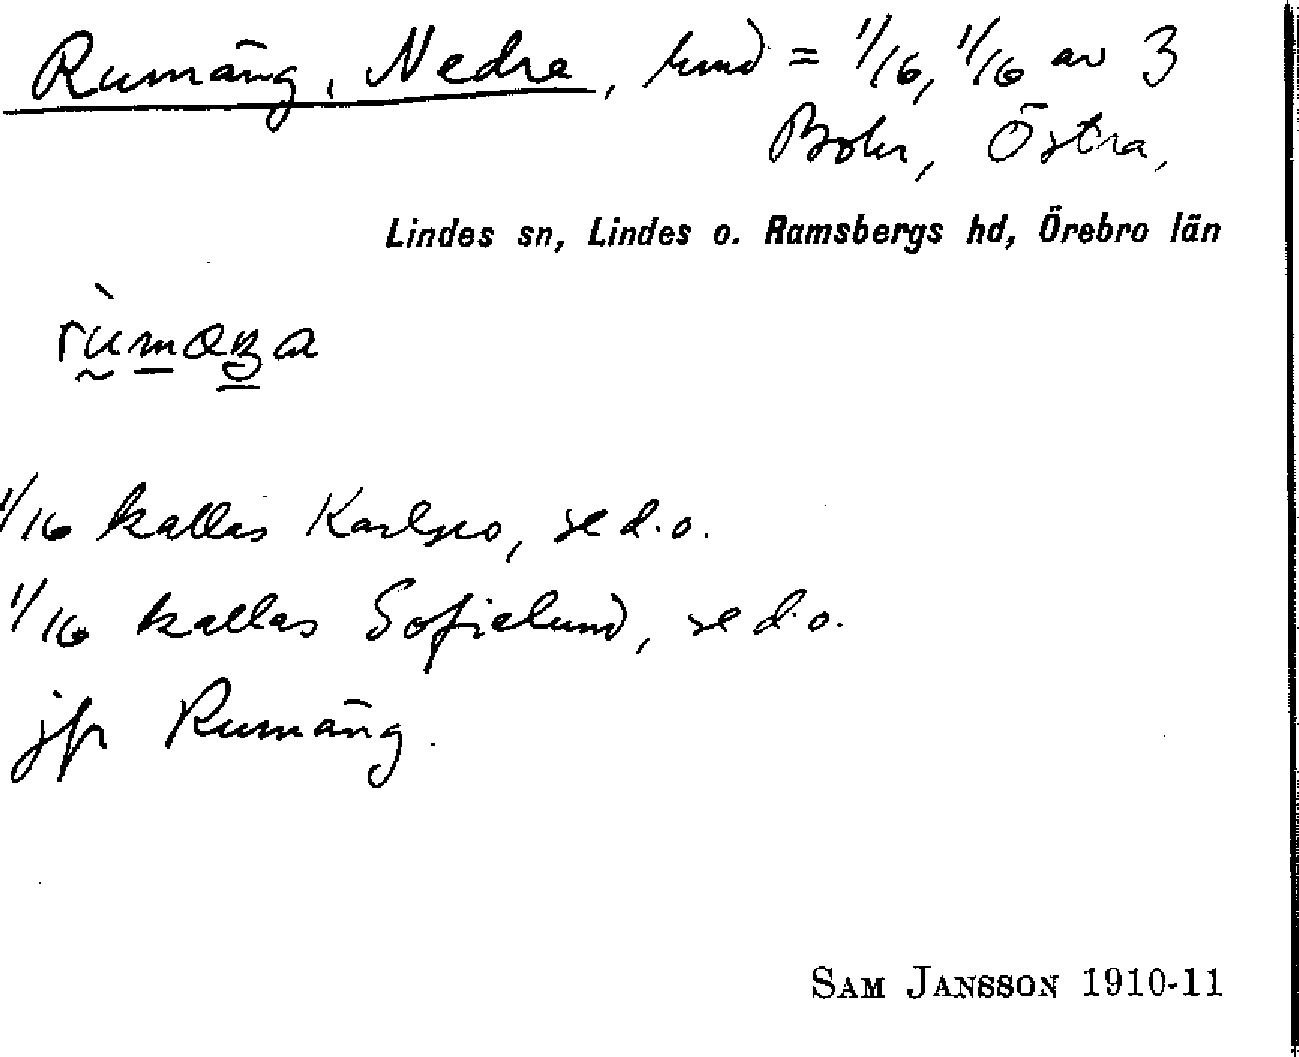 Rumäng, Nedre, hmd = 1/16, 1/16 av 3
Bohr, Östra,
Lindes sn, Lindes o. Ramsbergs hd, Örebro län
1/16 kallas Karlsro, se d.o.
1/16 kallas Sofielund, se d.o.
jfr Rumäng.
SAM JANSSON 1910-11